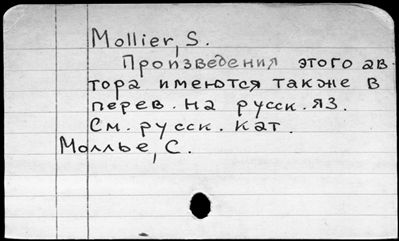 Mollier, S.
Произведения этого ав-
тора имеются также в
перев. на русск. яз.
См. русск. кат.
Моллье, С.